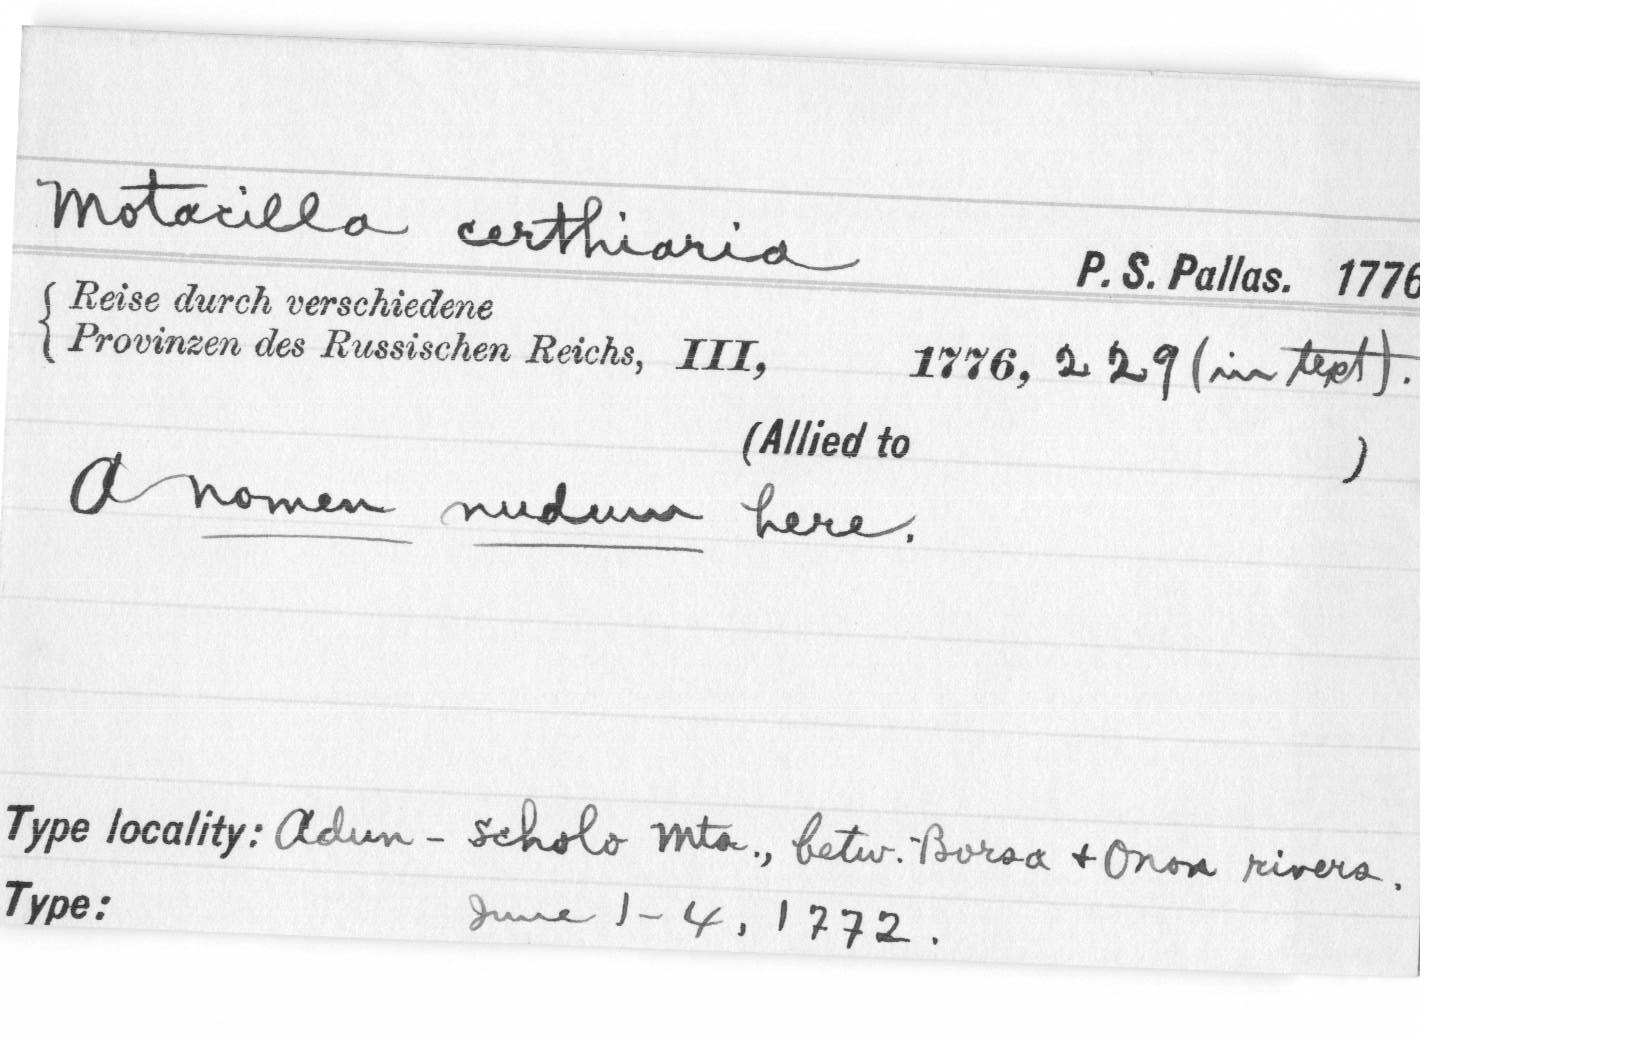 Motacilla certhiaria
P. S. Pallas. 1776
{ Reise durch verschiedene
Provinzen des Russischen Reichs, III, 1776, 229 (in text).
(Allied to )
A nomen nudum here.
Type locality: Adun-scholo Mts., betw. Borsa + Onon rivers.
Type: June 1-4, 1772.